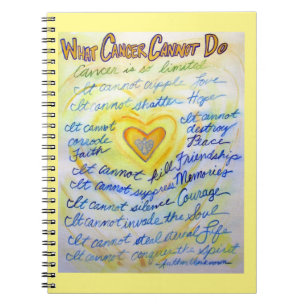 What Cancer Cannot Do
Cancer is so limited
It cannot cripple Love
It cannot shatter Hope
It cannot
corrode
Faith
It cannot
destroy
Peace
It cannot kill Friendships
It cannot suppress Memories
It cannot silence Courage
It cannot invade the Soul
It cannot steal eternal Life
It cannot conquer the Spirit
-Author Unknown